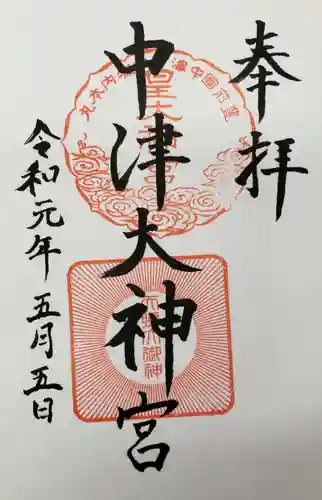 奉拝
中津大神宮
令和元年五月五日